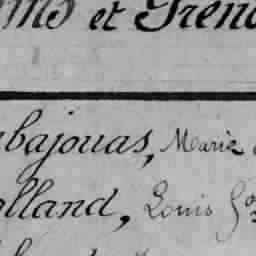 ms et Préno
abajouas, Marie
olland, Louis